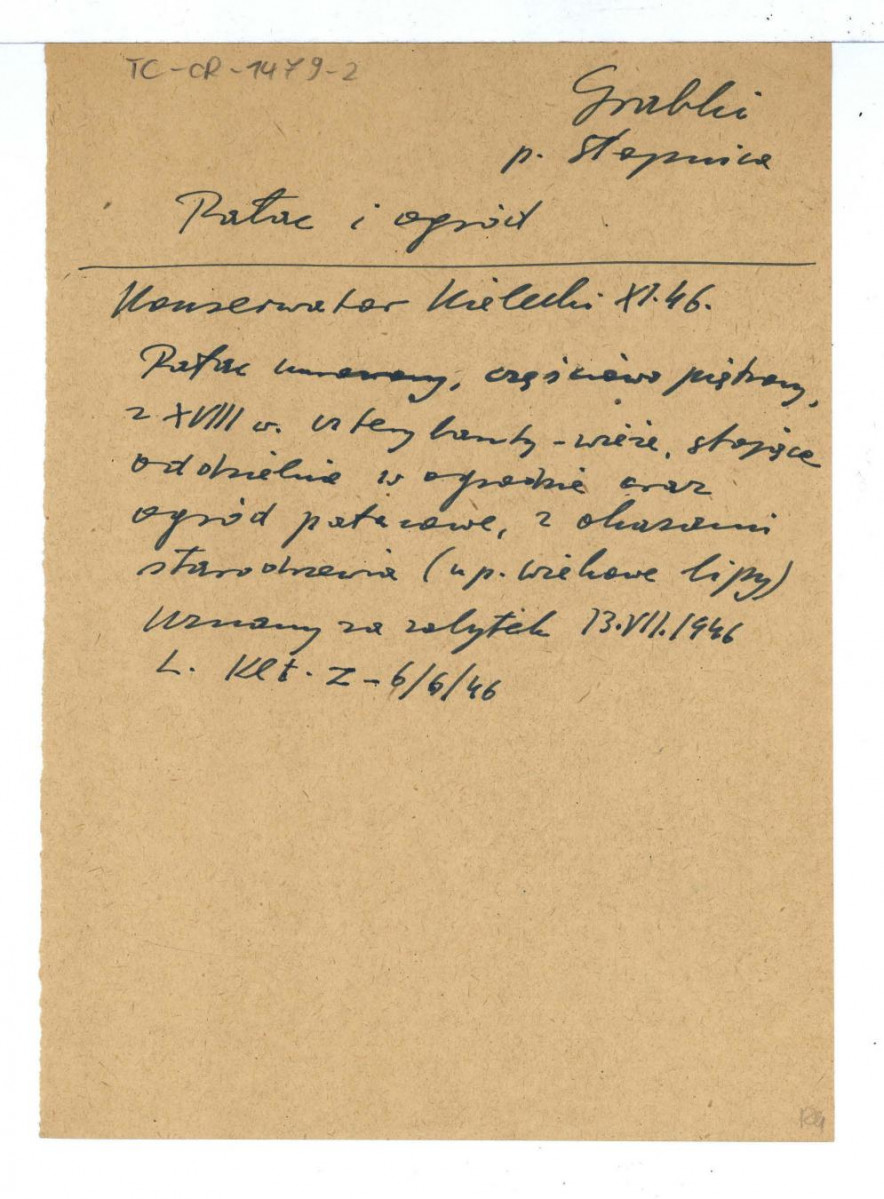 TC-CR-1479-2
Grabki
p. Stopnica
Pałac i ogród
Konserwator Kielecki XI.46.
Pałac murowany, częściowo piętrowy,
z XVIII w. cztery baszty-wieże, stojące
oddzielnie w ogrodzie oraz
ogród pałacowe, z okazami
starodrzewia (np. wiekowe lipy)
Uznany za zabytek 13.VII.1946
L. Klt. Z-6/6/46